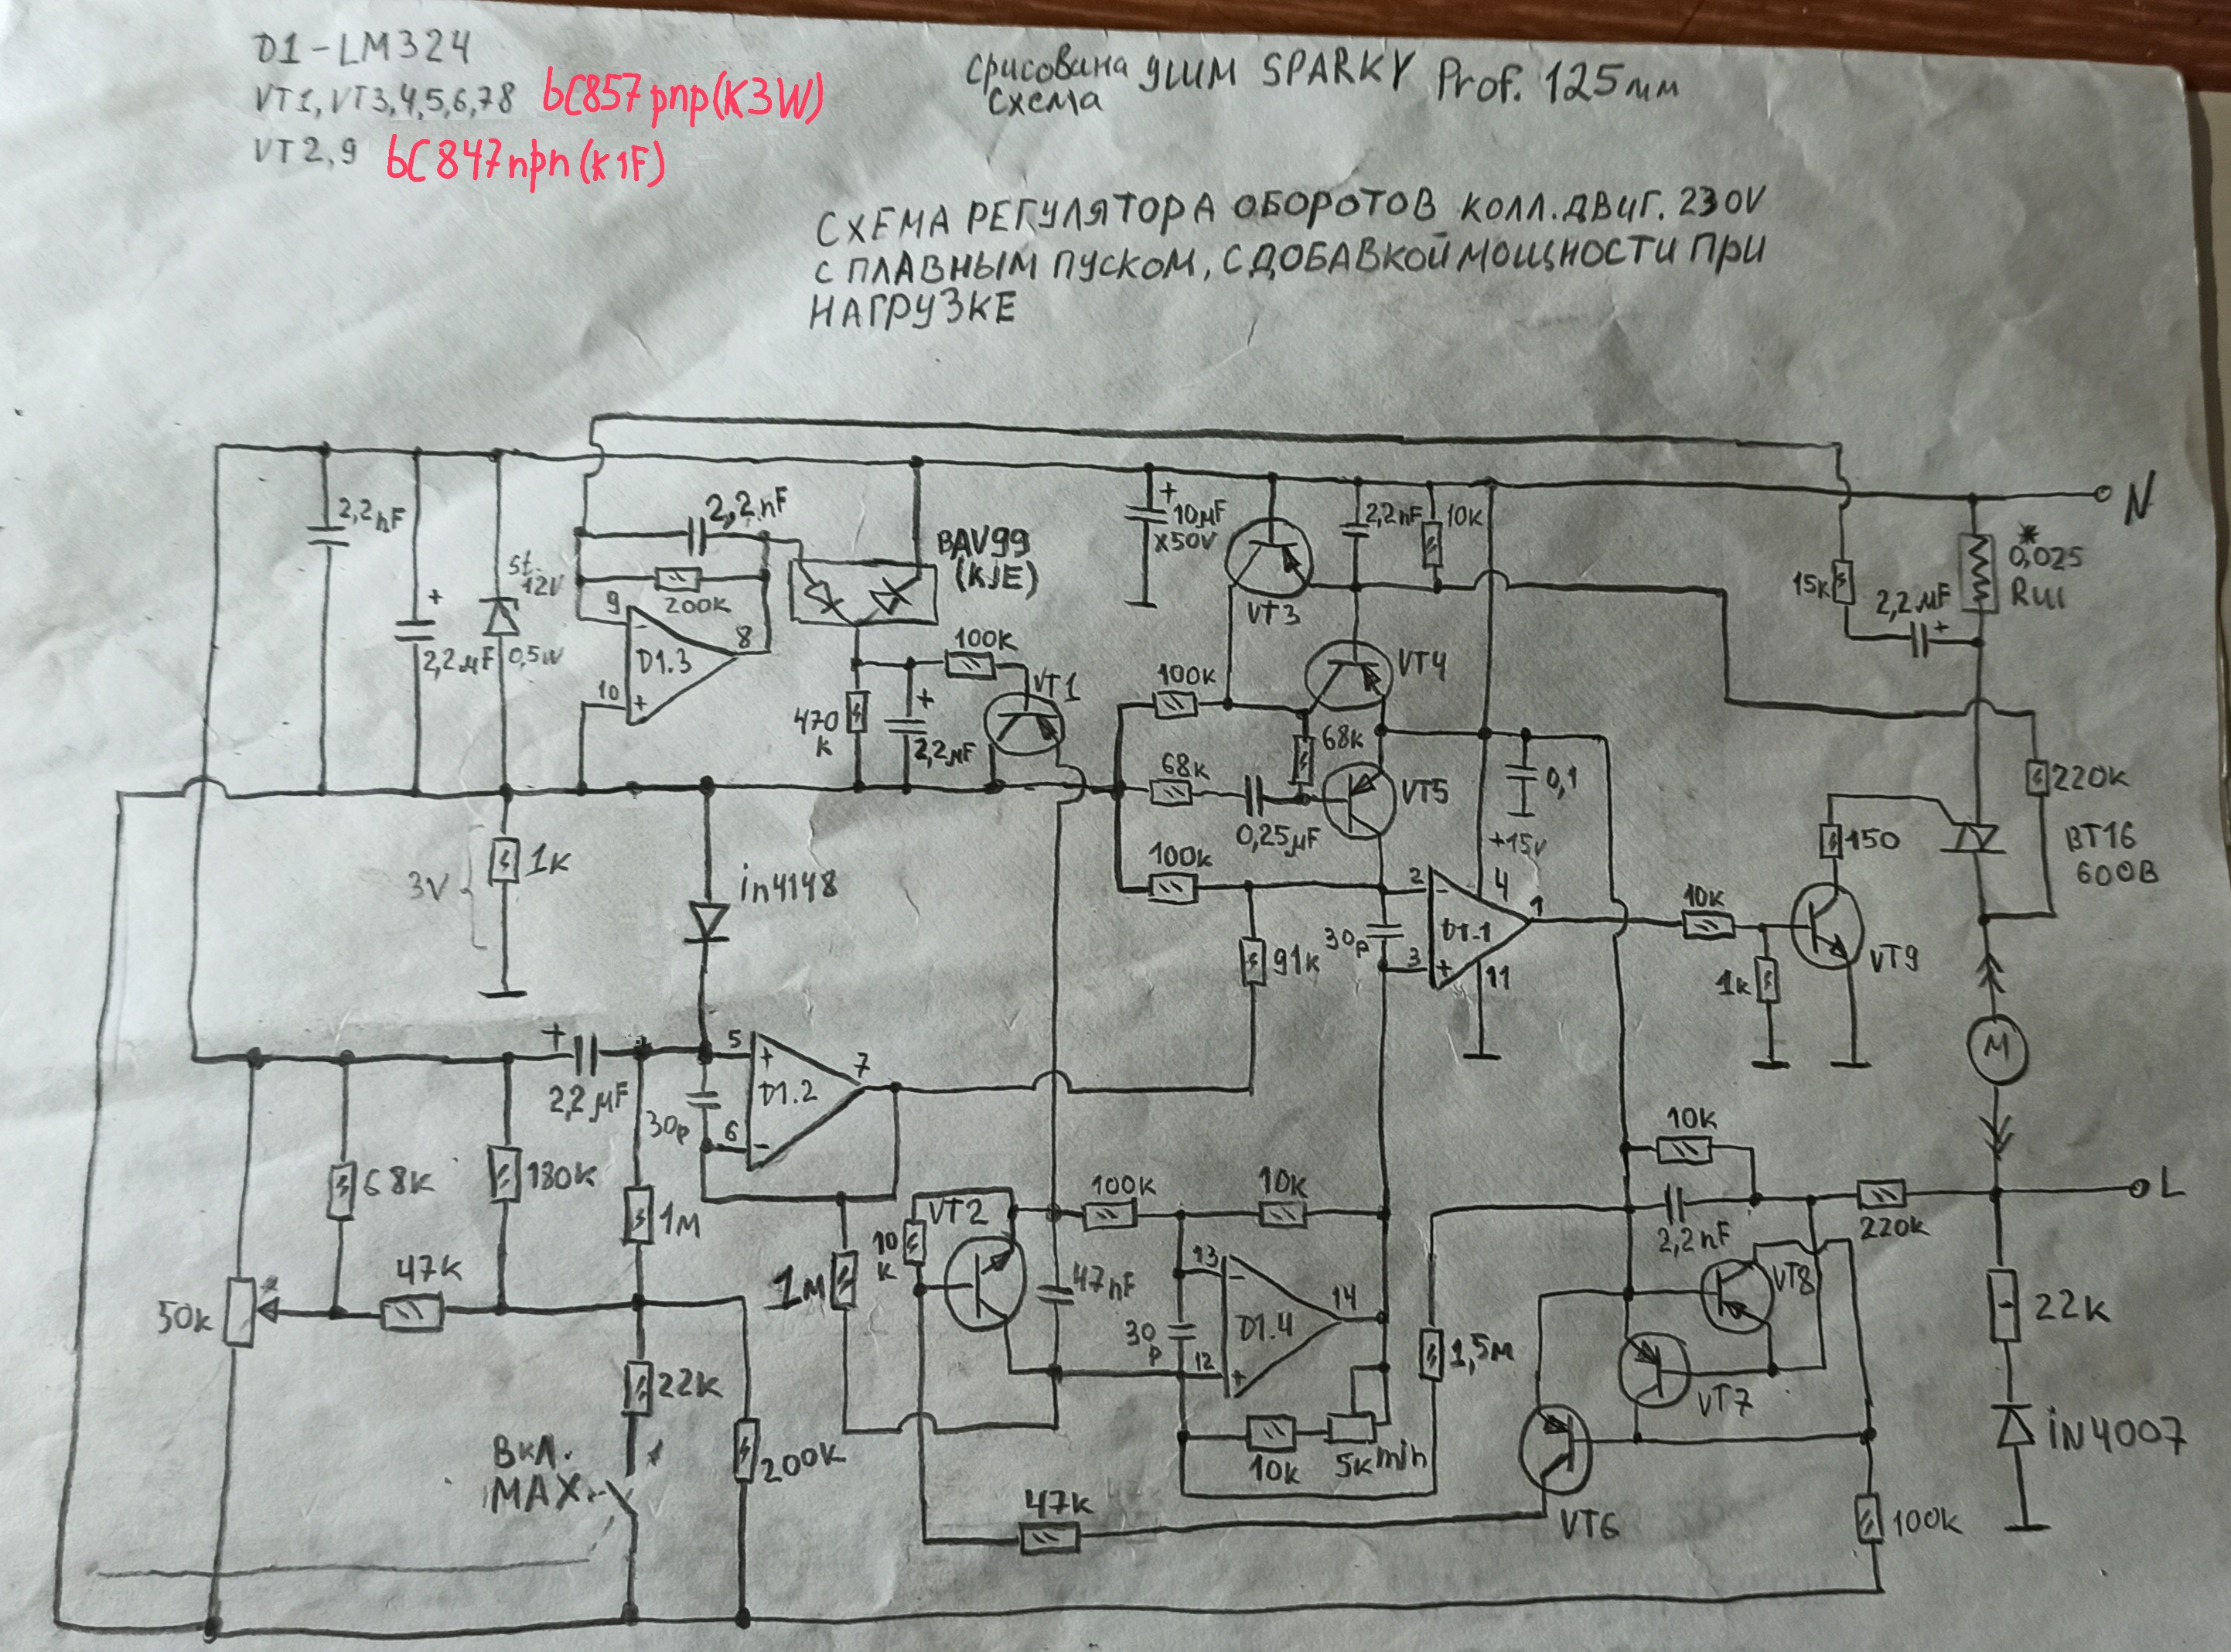 D1-LM324
VT1, VT3,4,5,6,78 bC857pnp(K3W)
VT2,9 bC847npn(K1F)
срисована УШМ SPARKY Prof. 125мм
схема
СХЕМА РЕГУЛЯТОРА ОБОРОТОВ КОЛЛ.ДВИГ. 230V
С ПЛАВНЫМ ПУСКОМ, С ДОБАВКОЙ МОЩНОСТИ ПРИ
НАГРУЗКЕ
N
2,2nF
2,2nF
BAV99
(KJE)
+
10µF
x50V
2,2nF
10k
*
0,025
Rш
15k
2,2µF
+
st.
12V
0,5w
+
2,2µF
200k
9
-
8
D1.3
10
+
VT3
100k
VT1
VT4
100k
470
k
+
2,2µF
68k
68k
VT5
0,25µF
0,1
+15v
220k
BT16
600В
150
3V
1k
in4148
100k
2
-
4
1
D1.1
30p
3
+
11
91k
10k
VT9
1k
M
+
2,2µF
5
+
7
D1.2
30p
6
-
10k
68k
180k
1M
VT2
100k
10k
2,2nF
220k
L
10
k
1M
47nF
13
-
14
D1.4
30
p
12
+
1,5M
VT8
22k
50k
47k
VT7
22k
200k
ВКЛ.
MAX.
10k
5k min
iN4007
47k
VT6
100k